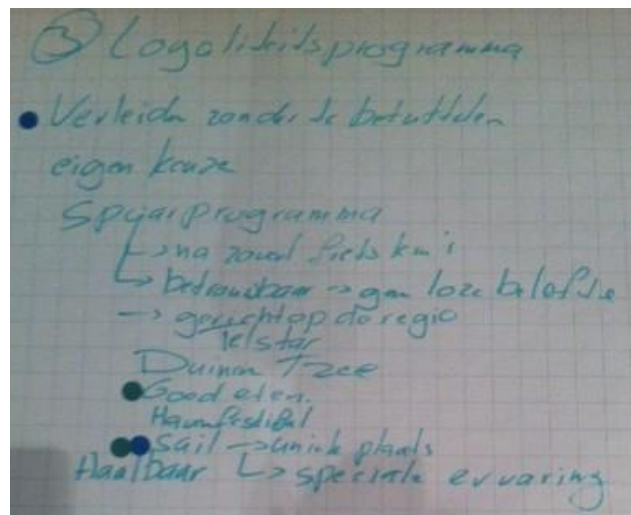 ③ Logaliteitsprogramma
Verleiden zonder te betuttelen
eigen keuze
Spaarprogramma
↳ na zoveel fiets km's
↳ betrouwbaar → geen loze belofte
→ gericht op de regio
Telstar
Duinen Zee
Goed eten.
Havenfestival
Sail → uniek plaats
Haalbaar ↳ speciale ervaring